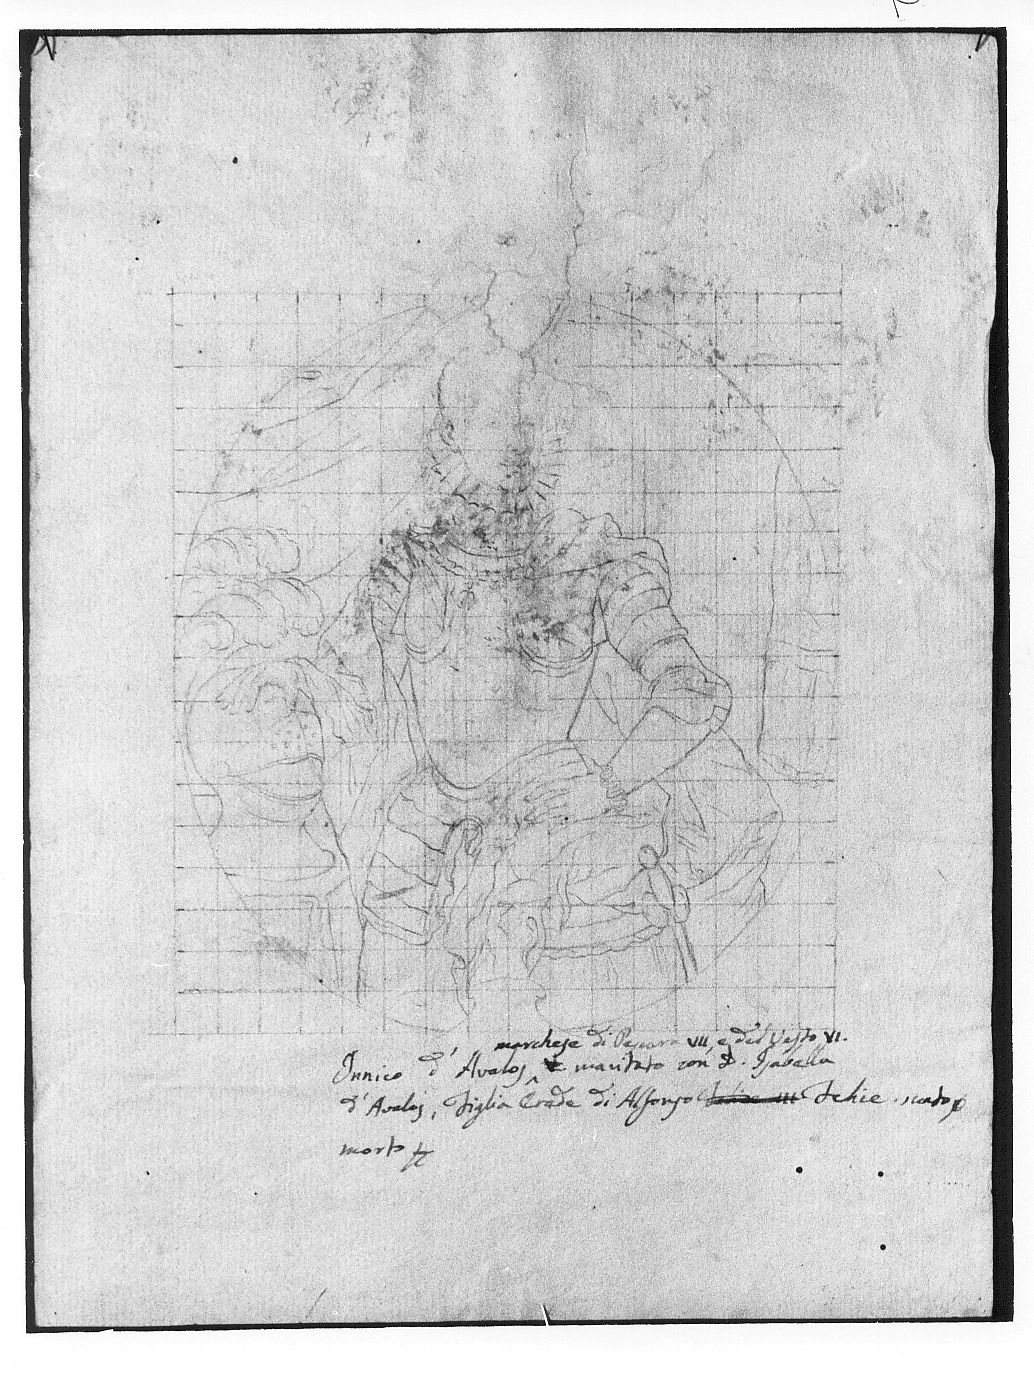 marchese di Pescara VII, e del Vasto VI.
Innico d' Avalos maritato con D. Isabella
d' Avalos, figlia Erede di Alfonso Felice nato
morto